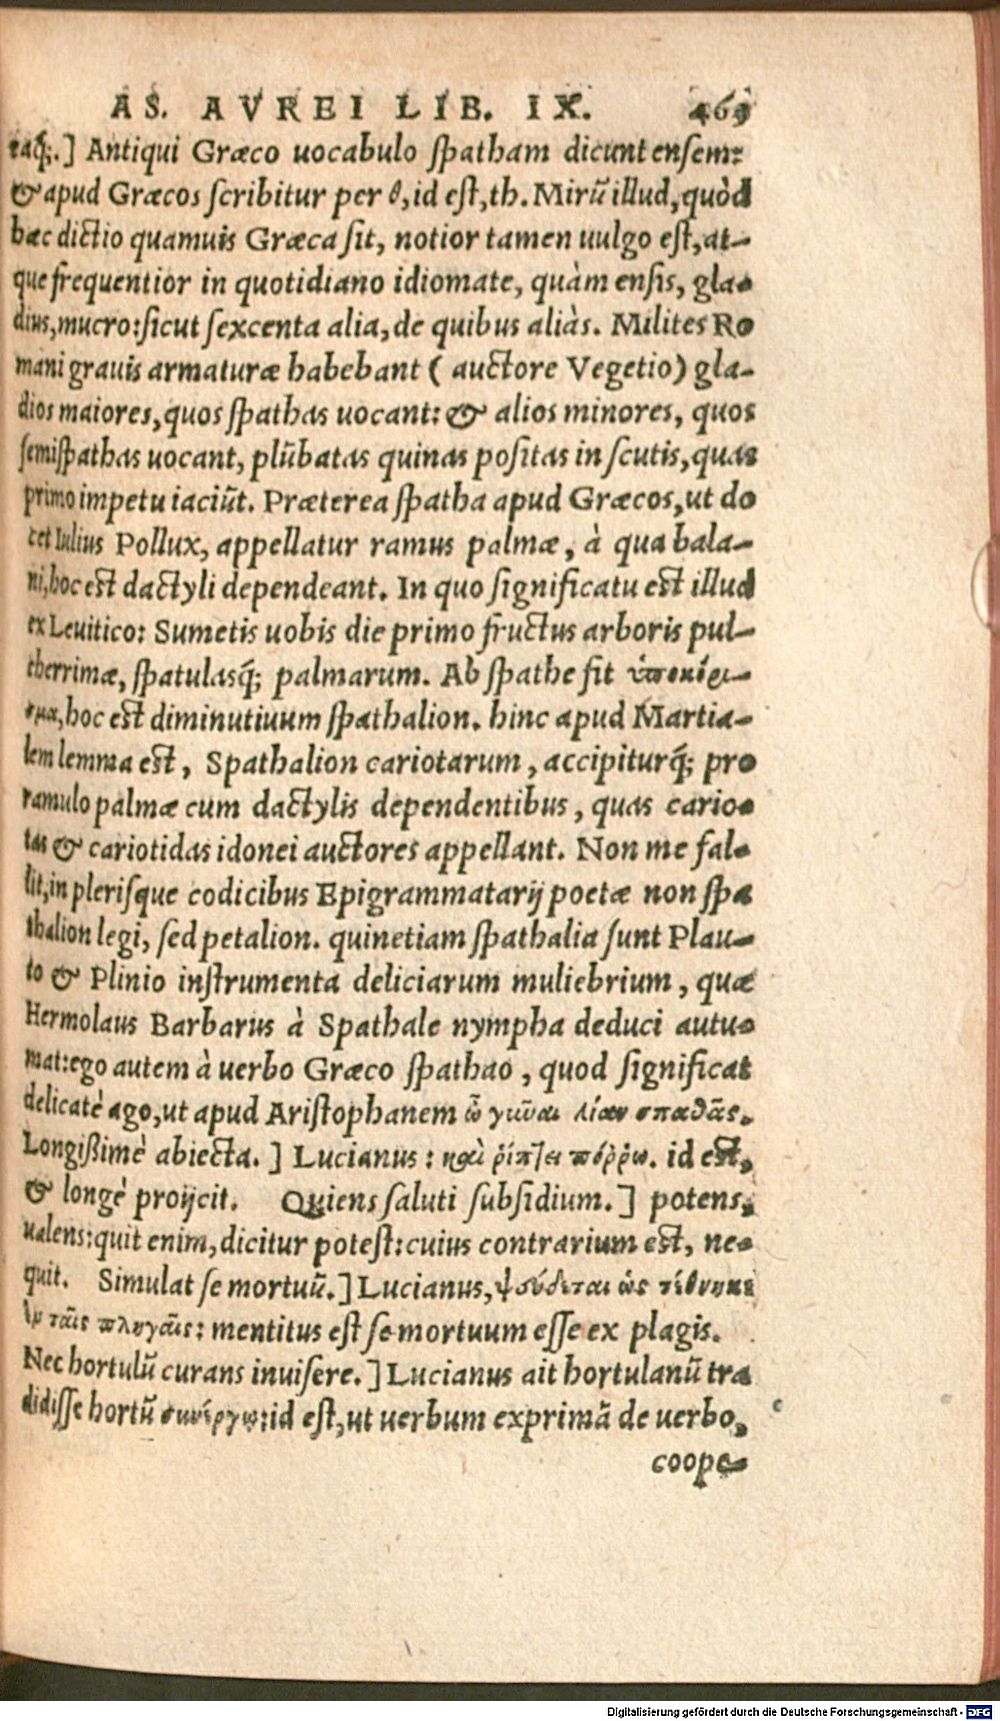 AS. AVREI LIB. IX. 469
taq́;.] Antiqui Græco uocabulo ſpatham dicunt enſem:
& apud Græcos ſcribitur per θ, id eſt, th. Mirũ illud, quòd
hæc dictio quamuis Græca ſit, notior tamen uulgo eſt, at-
que frequentior in quotidiano idiomate, quàm enſis, gla-
dius, mucro: ſicut ſexcenta alia, de quibus aliàs. Milites Ro
mani grauis armaturæ habebant ( auctore Vegetio) gla-
dios maiores, quos ſpathas uocant: & alios minores, quos
ſemiſpathas uocant, plũbatas quinas poſitas in ſcutis, quas
primo impetu iaciũt. Præterea ſpatha apud Græcos, ut do
cet Iulius Pollux, appellatur ramus palmæ, à qua bala-
ni, hoc est dactyli dependeant. In quo ſignificatu est illud
ex Leuitico: Sumetis uobis die primo fructus arboris pul-
cherrimæ, ſpatulasq́; palmarum. Ab ſpathe fit ὑποκόρι-
σμα, hoc est diminutiuum ſpathalion. hinc apud Martia-
lem lemma est, Spathalion cariotarum, accipiturq́; pro
ramulo palmæ cum dactylis dependentibus, quas cario-
tas & cariotidas idonei auctores appellant. Non me fal-
lit, in pleriſque codicibus Epigrammatarij poetæ non ſpa
thalion legi, ſed petalion. quinetiam ſpathalia ſunt Plau-
to & Plinio inſtrumenta deliciarum muliebrium, quæ
Hermolaus Barbarus à Spathale nympha deduci autu-
mat: ego autem à uerbo Græco ſpathao, quod ſignificat
delicatè ago, ut apud Ariſtophanem ὦ γύναι λίαν σπαθᾶς.
Longiſſimè abiecta.] Lucianus: καὶ ῥίπτει πόῤῥω. id est,
& longè proijcit. Quiens ſaluti ſubſidium.] potens,
ualens: quit enim, dicitur poteſt: cuius contrarium est, ne-
quit. Simulat ſe mortuũ.] Lucianus, ψεύδεται ὡς τέθνηκε
ἐν ταῖς πληγαῖς: mentitus eſt ſe mortuum eſſe ex plagis.
Nec hortulũ curans inuiſere.] Lucianus ait hortulanũ tra
didiſſe hortũ συνέργῳ: id eſt, ut uerbum exprimã de uerbo,
coope-
Digitalisierung gefördert durch die Deutsche Forschungsgemeinschaft - DFG